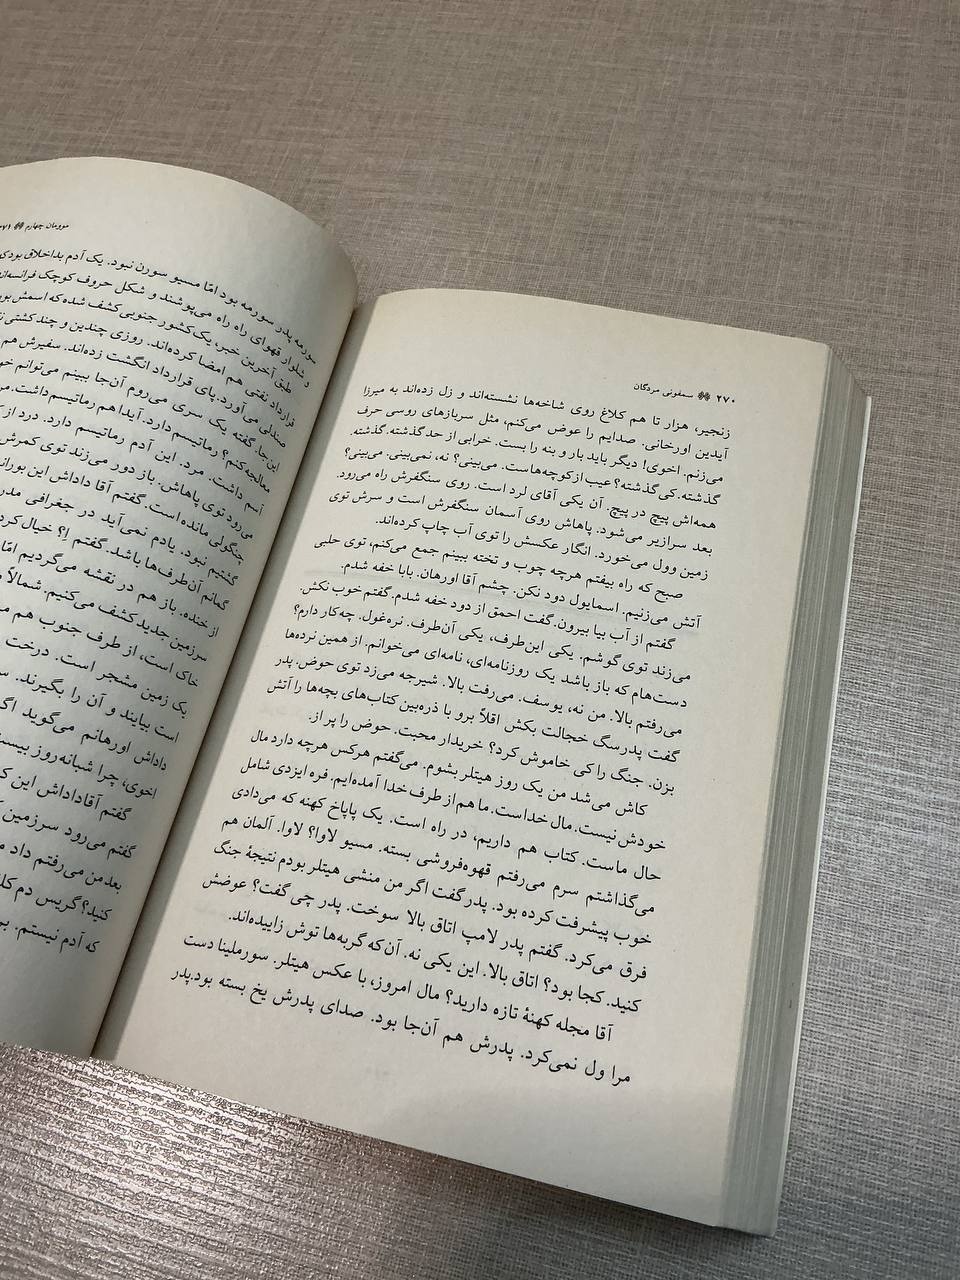 ۲۷۰ ❊❊ سمفونی مردگان
زنجیر، هزار تا هم کلاغ روی شاخه‌ها نشسته‌اند و زل زده‌اند به میرزا
آیدین اورخانی. صدایم را عوض می‌کنم، مثل سربازهای روسی حرف
می‌زنم. اخوی! دیگر باید بار و بنه را بست. خرابی از حد گذشته. گذشته.
گذشته. کی گذشته؟ عیب از کوچه‌هاست. می‌بینی؟ نه، نمی‌بینی. می‌بینی؟
همه‌اش پیچ در پیچ. آن یکی آقای لرد است. روی سنگفرش راه می‌رود.
بعد سرازیر می‌شود. پاهاش روی آسمان سنگفرش است و سرش توی
زمین وول می‌خورد. انگار عکسش را توی آب چاپ کرده‌اند.
صبح که راه بیفتم هرچه چوب و تخته ببینم جمع می‌کنم، توی حلبی
آتش می‌زنیم. اسمایول دود نکن. چشم آقا اورهان. بابا خفه شدم.
گفتم از آب بیا بیرون. گفت احمق از دود خفه شدم. گفتم خوب نکش.
می‌زند توی گوشم. یکی این‌طرف، یکی آن‌طرف. نره‌غول. چه‌کار دارم؟
دست‌هام که باز باشد یک روزنامه‌ای، نامه‌ای می‌خوانم. از همین نرده‌ها
می‌رفتم بالا. من نه، یوسف. می‌رفت بالا. شیرجه می‌زد توی حوض. پدر
گفت پدرسگ خجالت بکش اقلاً برو با ذره‌بین کتاب‌های بچه‌ها را آتش
بزن. جنگ را کی خاموش کرد؟ خریدار محبت. حوض را پر از.
کاش می‌شد من یک روز هیتلر بشوم. می‌گفتم هرکس هرچه دارد مال
خودش نیست. مال خداست. ما هم از طرف خدا آمده‌ایم. فره ایزدی شامل
حال ماست. کتاب هم داریم، در راه است. یک پاپاخ کهنه که می‌دادی
می‌گذاشتم سرم می‌رفتم قهوه‌فروشی بسته. مسیو لاوا؟ لاوا. آلمان هم
خوب پیشرفت کرده بود. پدر گفت اگر من منشی هیتلر بودم نتیجهٔ جنگ
فرق می‌کرد. گفتم پدر لامپ اتاق بالا سوخت. پدر چی گفت؟ عوضش
کنید. کجا بود؟ اتاق بالا. این یکی نه. آن‌که گربه‌ها توش زاییده‌اند.
آقا مجله کهنهٔ تازه دارید؟ مال امروز، با عکس هیتلر. سورملینا دست
مرا ول نمی‌کرد. پدرش هم آن‌جا بود. صدای پدرش یخ بسته بود. پدر
موومان چهارم ❊❊
سورمه پدر سورمه بود امّا مسیو سورن نبود. یک آدم بداخلاق بود
و شلوار قهوه‌ای راه راه می‌پوشند و شکل حروف کوچک
طبق آخرین خبر، یک کشور جنوبی کشف شده که اسمش
قرارداد نفتی هم امضا کرده‌اند. روزی چندین و چند کشتی
صندلی می‌آورد. پای قرارداد انگشت زده‌اند. سفیرش هم
این‌جا. گفته یک سری می‌روم آن‌جا ببینم می‌توانم
معالجه کنم؟ رماتیسم دارد. آیدا هم رماتیسم داشت.
آسم داشت. مرد. این آدم رماتیسم دارد. درد
می‌رود توی پاهاش. باز دور می‌زند توی کمرش
چنگولی مانده است. گفتم آقا داداش این
گشتیم نبود. یادم نمی‌آید در جغرافی
گمانم آن‌طرف‌ها باشد. گفتم اِ؟ خیال
از خنده. باز هم در نقشه می‌گردیم
سرزمین جدید کشف می‌کنیم. شمالاً
خاک است، از طرف جنوب هم
یک زمین مشجر است. درخت
است بیایند و آن را بگیرند.
داداش اورهانم می‌گوید
اخوی، چرا شبانه‌روز
گفتم آقاداداش این
گفتم می‌رود سرزمین
بعد من می‌رفتم داد
کنید؟ گریس دم
که آدم نیستم.